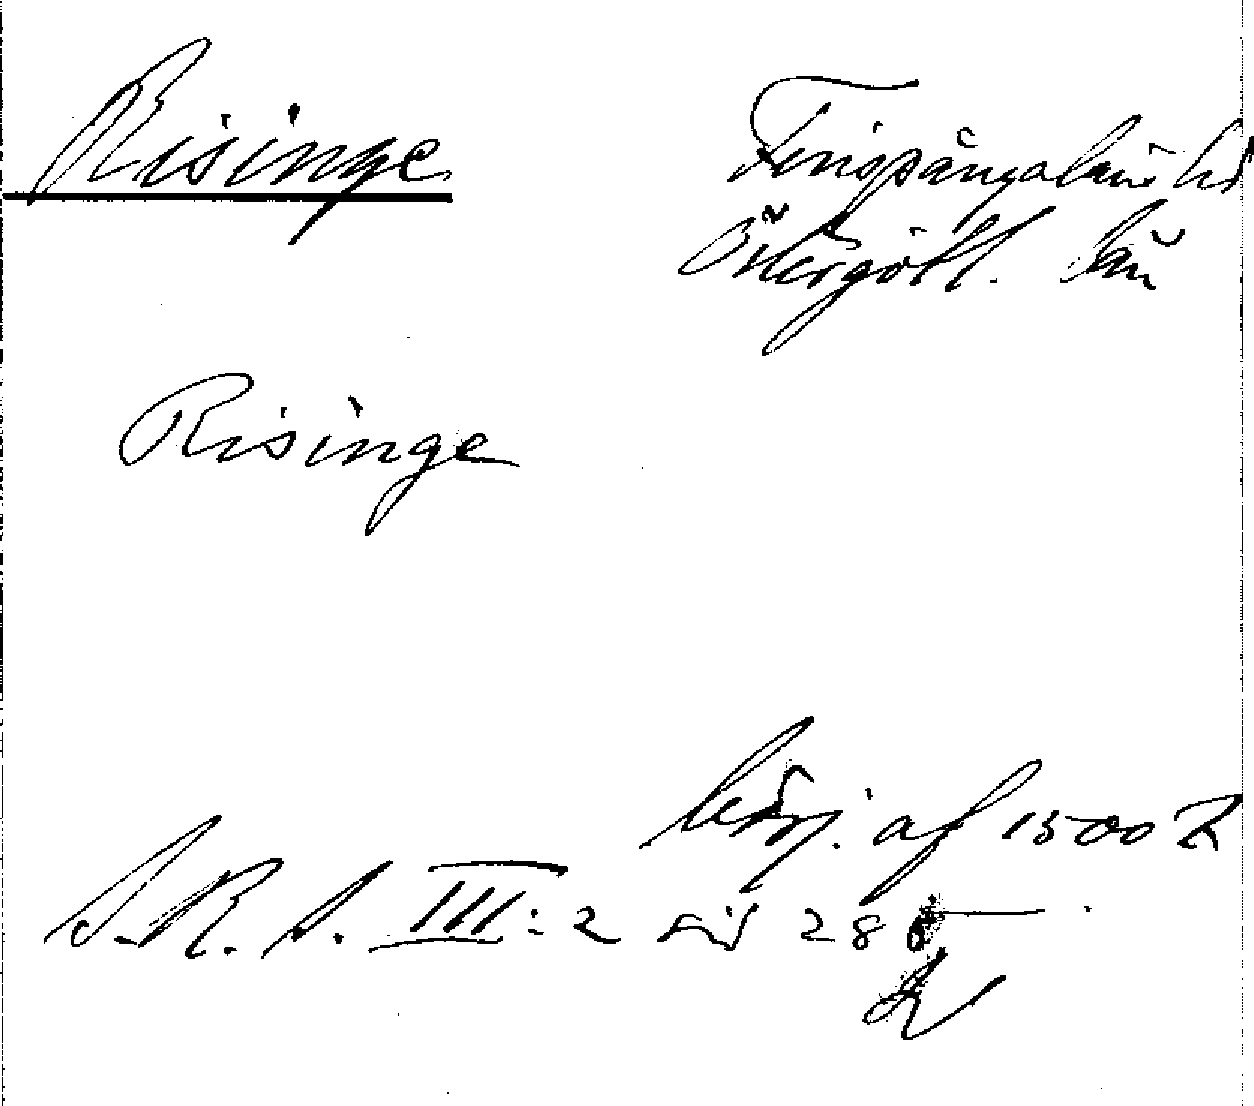 Risinge
Finspångaläns hd
Östergötl. län
Risinge
börj. af 1500 t
S.R.S. III:2 sid 286